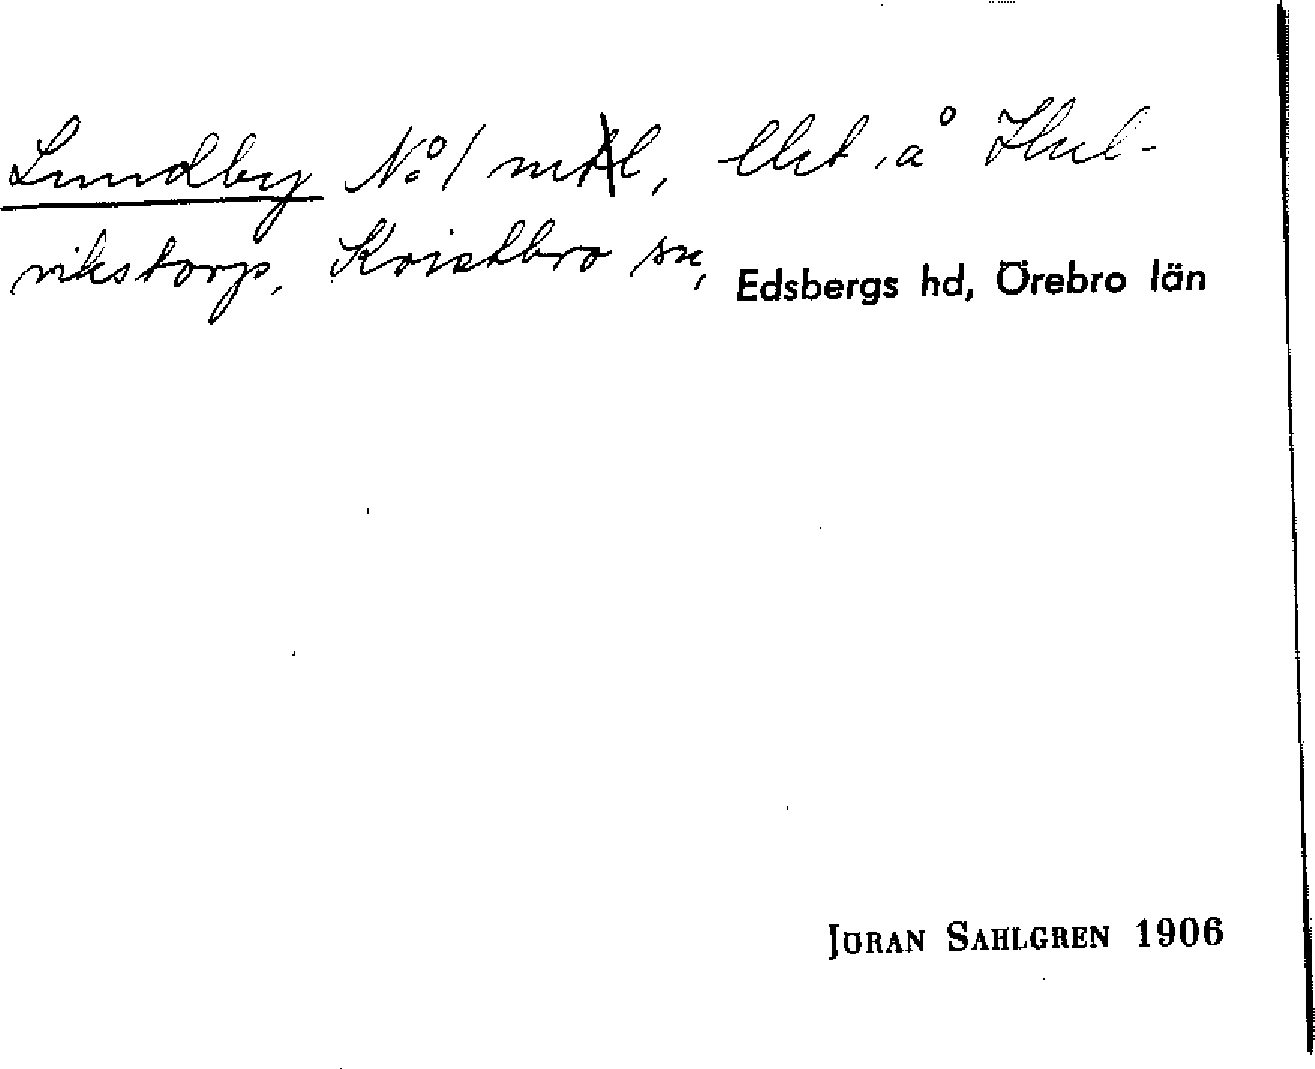 Lundby No 1 mtl, Ulst. å Hul-
vikstorp, Kvistbro sn, Edsbergs hd, Örebro län
JÖRAN SAHLGREN 1906